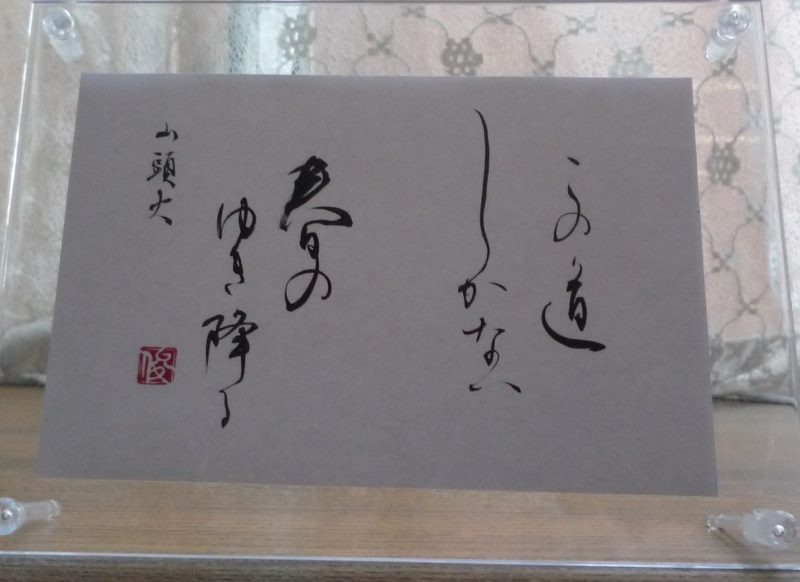 この道
しかない
春の
ゆき降る
山頭火
俊